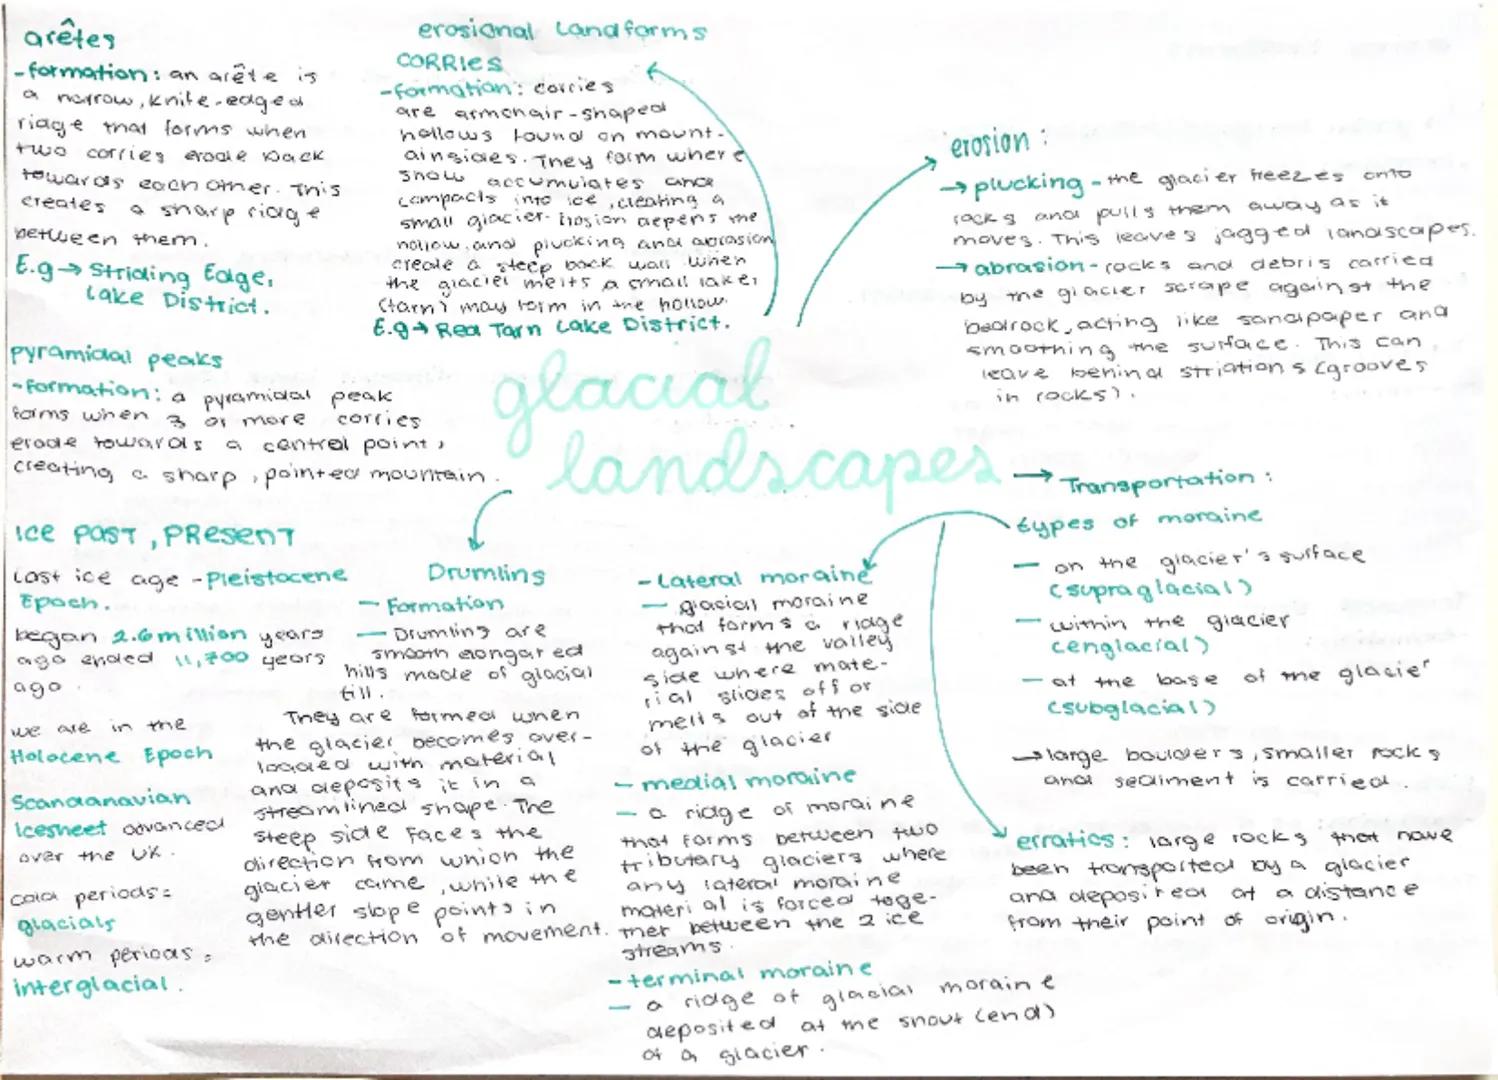 arêtes
-formation: an arête is
a narrow, knife-edged
ridge that forms when
two corries erode back
towards each other. This
creates a sharp ridge
between them.
E.g→ Striding Edge,
Lake District.
pyramidal peaks
-formation: a pyramidal peak
forms when 3 or more corries
erode towards a central point,
creating a sharp, pointed mountain.
erosional Landforms
CORRIES
-formation: corries
are armchair-shaped
hollows found on mount-
ainsides. They form where
snow accumulates and
compacts into ice, creating a
small glacier. Erosion depens the
hollow, and plucking and abrasion
create a steep back wall when
the glacier melts, a small lake,
(tarn) may form in the hollow.
E.g→ Red Tarn Lake District.
glacial
landscapes
erosion:
→ plucking - the glacier freezes onto
rocks and pulls them away as it
moves. This leaves jagged landscapes.
→ abrasion - rocks and debris carried
by the glacier scrape against the
bedrock, acting like sandpaper and
smoothing the surface. This can
leave behind striations (grooves
in rocks).
→ Transportation:
types of moraine
- on the glacier's surface
(supraglacial)
- within the glacier
(englacial)
- at the base of the glacier
(subglacial)
→ large boulders, smaller rocks
and sediment is carried.
erratics: large rocks that have
been transported by a glacier
and deposited at a distance
from their point of origin.
ICE PAST, PRESENT
Last ice age - Pleistocene
Epoch.
began 2.6 million years
ago ended 11,700 years
ago.
we are in the
Holocene Epoch
Scandanavian
Icesheet advanced
over the UK.
cold periods =
glacials
warm periods =
interglacial.
Drumlins
- Formation
- Drumlins are
smooth elongated
hills made of glacial
till.
They are formed when
the glacier becomes over-
loaded with material
and deposits it in a
streamlined shape. The
steep side faces the
direction from which the
glacier came, while the
gentler slope points in
the direction of movement.
- Lateral moraine
- glacial moraine
that forms a ridge
against the valley
side where mate-
rial slides off or
melts out of the side
of the glacier
- medial moraine
- a ridge of moraine
that forms between two
tributary glaciers where
any lateral moraine
material is forced toge-
ther between the 2 ice
streams.
- terminal moraine
- a ridge of glacial moraine
deposited at the snout (end)
of a glacier.